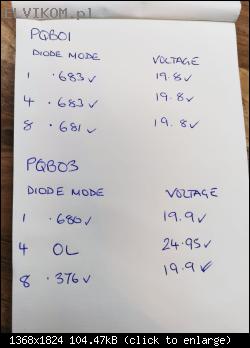 ELVIKOM.pl
PQB01
DIODE MODE VOLTAGE
1 .683V 19.8V
4 .683V 19.8V
8 .681V 19.8V
PQB03
DIODE MODE VOLTAGE
1 .680V 19.9V
4 OL 24.95V
8 .376V 19.9V
1368x1824 104.47kB (click to enlarge)